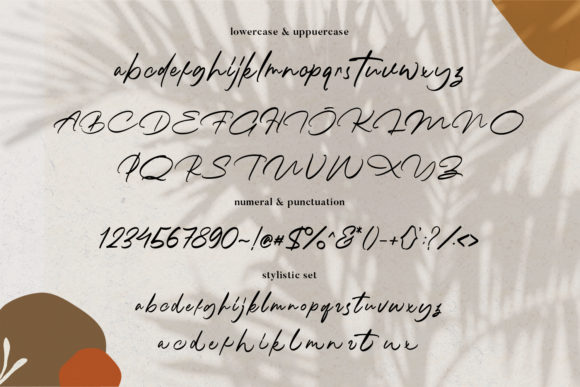 lowercase & uppuercase
abcdefghijklmnopqrstuvwxyz
ABCDEFGHIJKLMNO
PQRSTUVWXYZ
numeral & punctuation
1234567890~!@#$%^&*()-+{}:?/.<>
stylistic set
abcdefghijklmnopqrstuvwxyz
acdehiklmnrtuvx